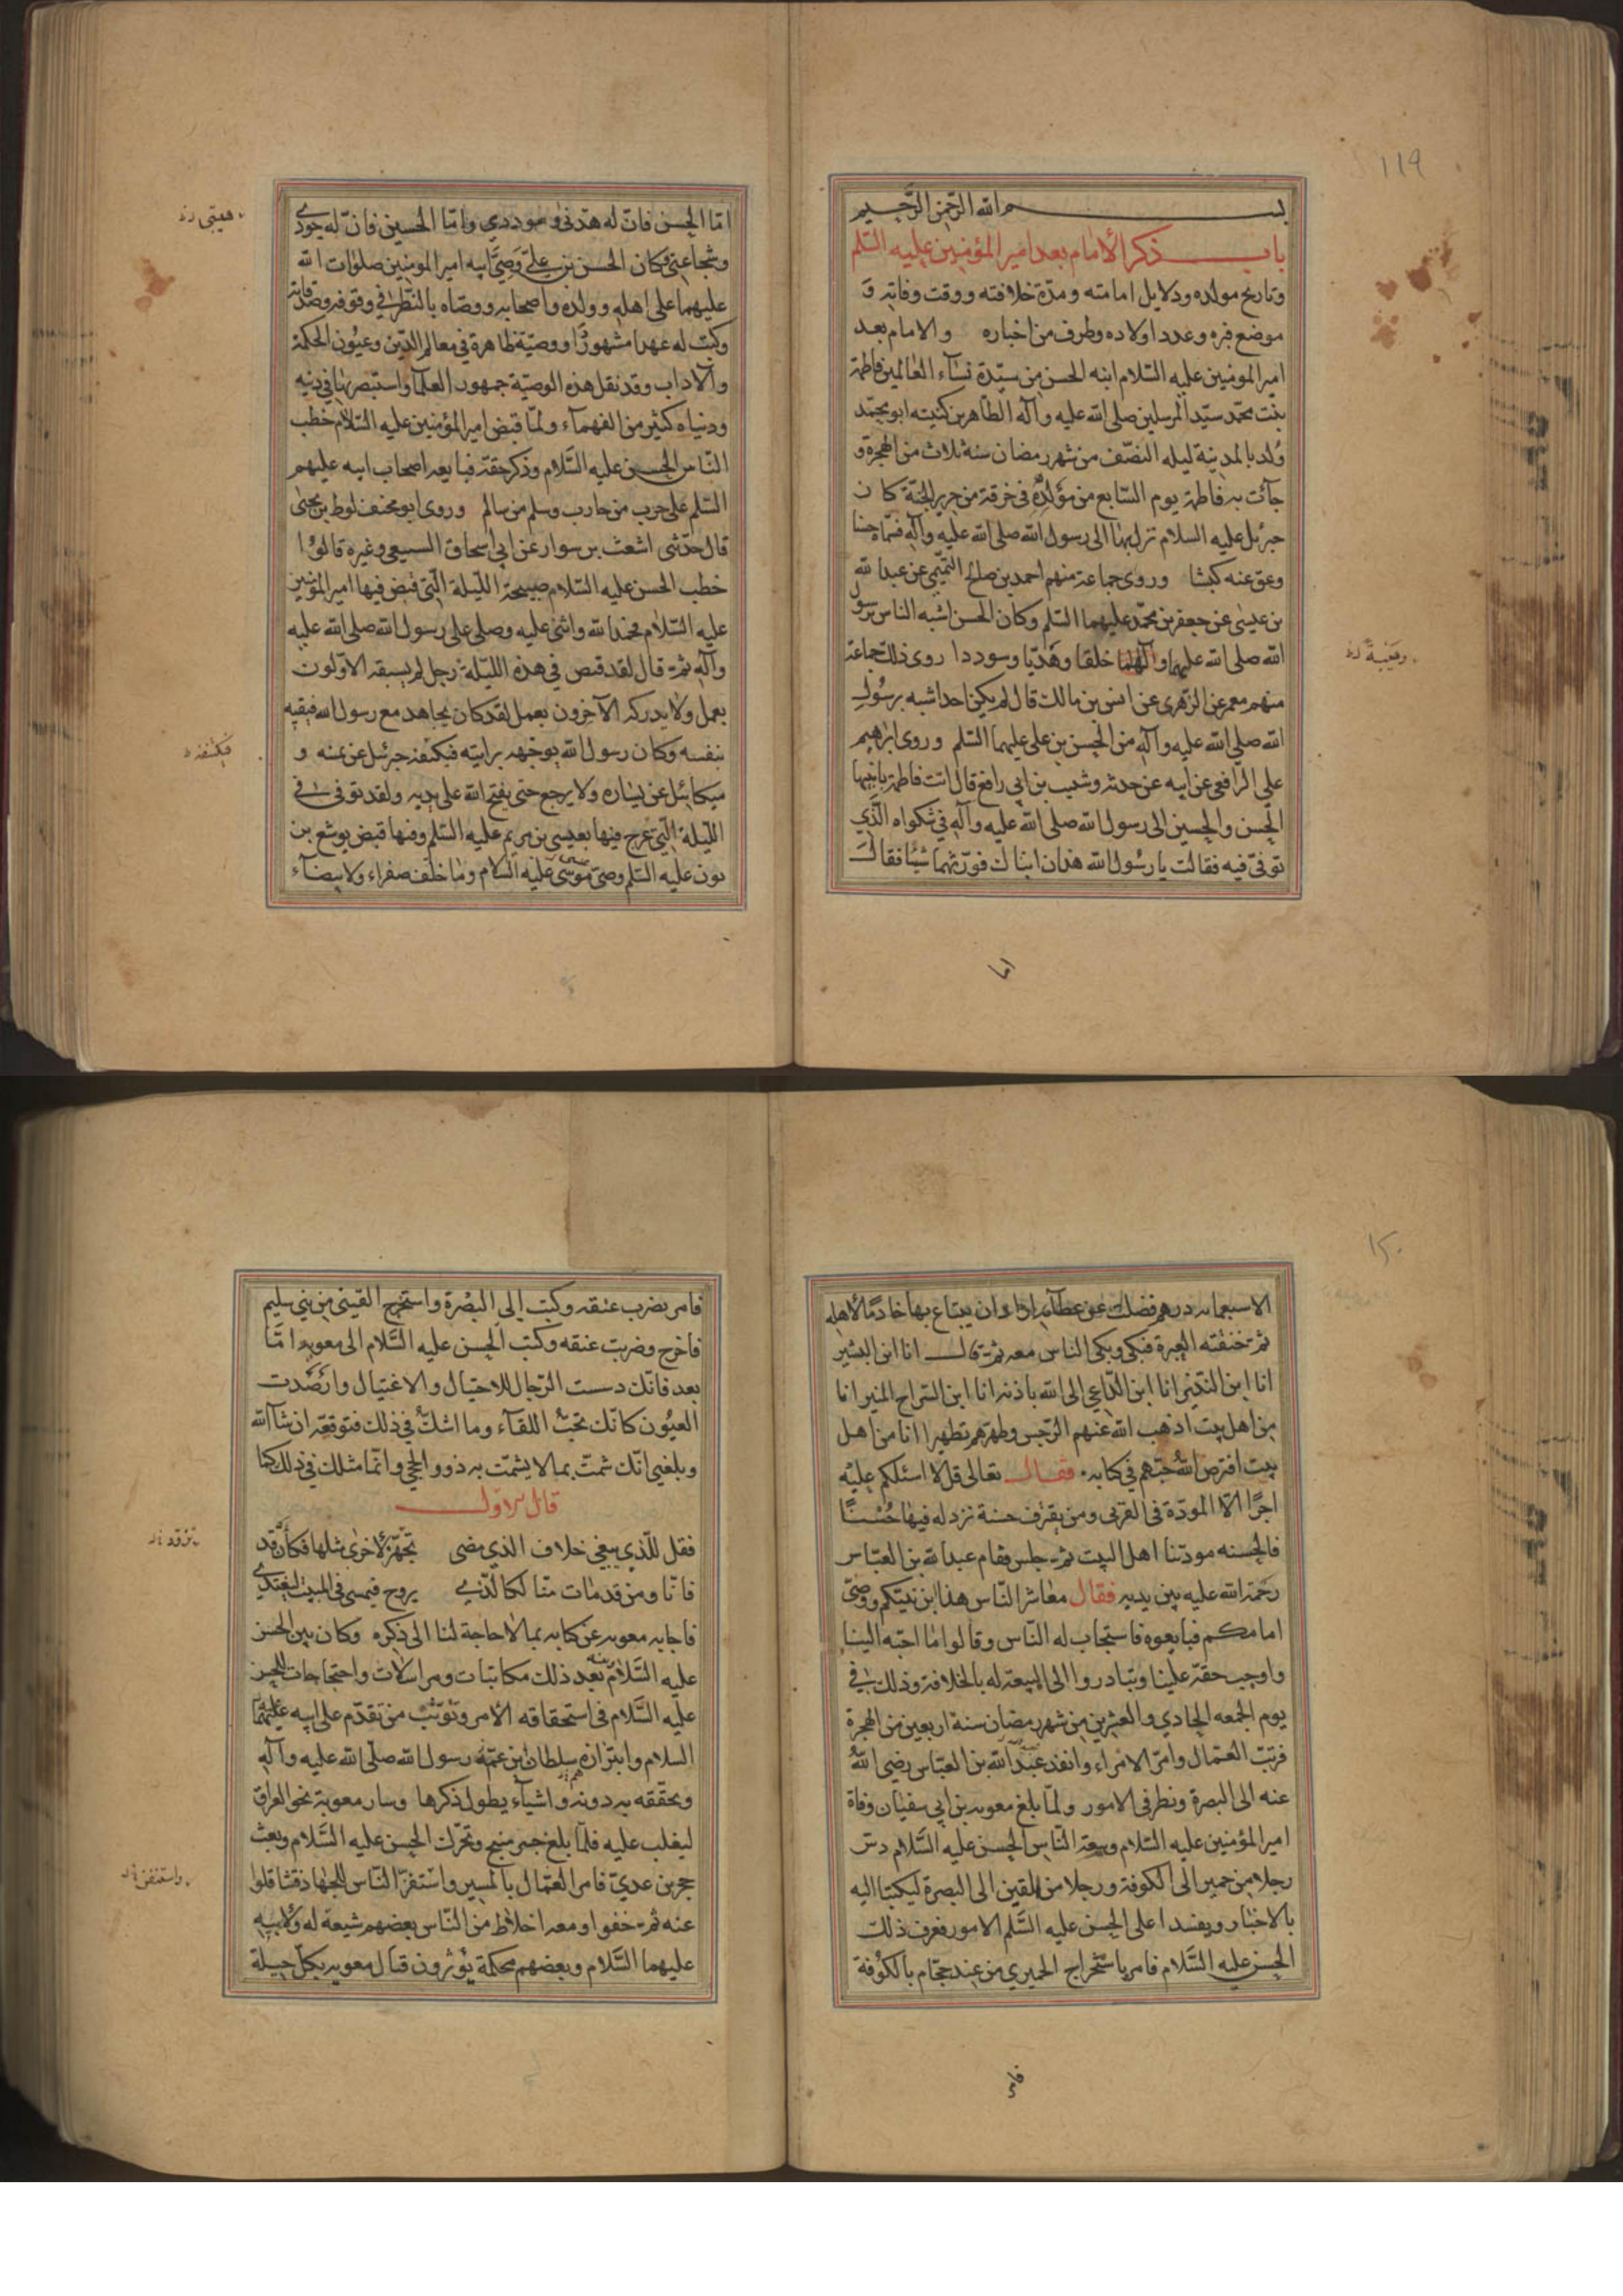 ١١٩
بسم الله الرحمن الرحيم
باب ذكر الأمام بعد امير المؤمنين عليه السلم
وتاريخ مولده ودلايل امامته ومدة خلافته ووقت وفاته و
موضع قبره وعدد اولاده وطرف من اخباره والامام بعد
امير المومنين عليه السلام ابنه الحسن من سيدة نسآء العالمين فاطمة
بنت محمد سيد المرسلين صلى الله عليه وآله الطاهرين كنيته ابو محمد
ولد بالمدينة ليله النصف من شهر رمضان سنة ثلاث من الهجرة و
جآئت به فاطمة يوم السابع من مولده في خرقة من حرير الجنة كان
جبرئيل عليه السلام نزل بها الى رسول الله صلى الله عليه وآله فسماه حسنا
وعق عنه كبشا وروى جماعة منهم احمد بن صالح التميمي عن عبد الله
بن عيسى عن جعفر بن محمد عليهما السلم وكان الحسن اشبه الناس برسول
الله صلى الله عليهما وآلهما خلقا وهديا وسوددا روى ذلك جماعة
منهم معمر عن الزهرى عن انس بن مالك قال لم يكن احد اشبه برسول
الله صلى الله عليه وآله من الحسن بن علي عليهما السلم وروى ابرهيم
علي الرافعي عن ابيه عن جدته وشبيب بن ابي رافع قال اتت فاطمة بابنيها
الحسن والحسين الى رسول الله صلى الله عليه وآله في شكواه الذي
توفي فيه فقالت يا رسول الله هذان ابناك فورثهما شيئا فقال
اما
اما الحسن فان له هدئى وسوددي واما الحسين فان له جودى
وشجاعتي وكان الحسن بن علي وصي ابيه امير المومنين صلوات الله
عليهما على اهله وولده واصحابه ووصاه بالنظر في وقوفه وصدقاته
وكتب له عهدا مشهورا ووصية ظاهرة في معالم الدين وعيون الحكمة
والاداب وقد نقل هذه الوصية جمهور العلمآ واستبصر بها في دينه
ودنياه كثير من الفهمآء ولما قبض امير المؤمنين عليه السلام خطب
الناس الحسن عليه السلام وذكر حقه فبايعه اصحاب ابيه عليهم
السلم على حرب من حارب وسلم من سالم وروى ابو مخنف لوط بن يحيى
قال حدثني اشعث بن سوار عن ابي اسحاق السبيعي وغيره قالوا
خطب الحسن عليه السلام صبيحة الليلة التي قبض فيها امير المؤمنين
عليه السلام فحمد الله واثنى عليه وصلى على رسول الله صلى الله عليه
وآله ثم قال لقد قبض في هذه الليلة رجل لم يسبقه الاولون
بعمل ولا يدركه الآخرون بعمل لقد كان يجاهد مع رسول الله فيقيه
بنفسه وكان رسول الله يوجهه برايته فيكنفه جبرئيل عن يمينه و
ميكائيل عن يساره ولا يرجع حتى يفتح الله على يديه ولقد توفى في
الليلة التي عرج فيها بعيسى بن مريم عليه السلم وفيها قبض يوشع بن
نون عليه السلم وصي موسى عليه السلام وما خلف صفراء ولا بيضآء
الا سبعماية درهم فضلت عن عطآيه اراد ان يبتاع بها خادما لأهله
ثم خنقته العبرة فبكى وبكى الناس معه ثم قال انا ابن البشير
انا ابن النذير انا ابن الداعي الى الله باذنه انا ابن السراج المنير انا
من اهل بيت اذهب الله عنهم الرجس وطهرهم تطهيرا انا من اهل
بيت افترض الله حبهم في كتابه فقال تعالى قل لا اسئلكم عليه
اجرا الا المودة في القربى ومن يقترف حسنة نزد له فيها حسنا
فالحسنه مودتنا اهل البيت ثم جلس فقام عبد الله بن العباس
رحمة الله عليه بين يديه فقال معاشر الناس هذا ابن نبيكم ووصي
امامكم فبايعوه فاستجاب له الناس وقالوا ما احبه الينا
واوجب حقه علينا وتبادروا الى البيعة له بالخلافة وذلك في
يوم الجمعه الحادي والعشرين من شهر رمضان سنة اربعين من الهجرة
فرتب العمال وامر الامراء وانفذ عبد الله بن العباس رضي الله
عنه الى البصرة ونظر في الامور ولما بلغ معويه بن ابي سفيان وفاة
امير المؤمنين عليه السلام وبيعة الناس الحسن عليه السلام دس
رجلا من حمير الى الكوفة ورجلا من القين الى البصرة ليكتبا اليه
بالاخبار ويفسدا على الحسن عليه السلم الامور فعرف ذلك
الحسن عليه السلام فامر باستخراج الحميري من عند حجام بالكوفة
فامر
فامر بضرب عنقه وكتب الى البصرة واستخرج القيني من بني سليم
فاخرج وضربت عنقه وكتب الحسن عليه السلام الى معويه اما
بعد فانك دسست الرجال للاحتيال والاغتيال وارصدت
العيون كانك تحب اللقآء وما اشك في ذلك فتوقعه ان شآ الله
وبلغني انك شمت بما لا يشمت به ذوو الحجي وانما مثلك في ذلك كما
قال الاول
فقل للذي يبغي خلاف الذي مضى تجهز لأخرى مثلها فكأن قد
فانا ومن قد مات منا لكالذي يروح فيمسى في المبيت ليغتدى
فاجابه معويه عن كتابه بما لا حاجة لنا الى ذكره وكان بين الحسن
عليه السلام وبينه بعد ذلك مكاتبات ومراسلات واحتجاجات للحسن
عليه السلام في استحقاقه الأمر وتوثب من تقدم على ابيه عليهما
السلام وابتزازه سلطان بن عمه رسول الله صلى الله عليه وآله
وتحققه به دونه واشيآء يطول ذكرها وسار معوية نحو العراق
ليغلب عليه فلما بلغ جسر منبج وتحرك الحسن عليه السلام وبعث
حجر بن عدي فامر العمال بالمسير واستنفر الناس للجهاد فتثاقلوا
عنه ثم خفوا ومعه اخلاط من الناس بعضهم شيعة له ولأبيه
عليهما السلام وبعضهم محكمة يؤثرون قتال معويه بكل حيلة